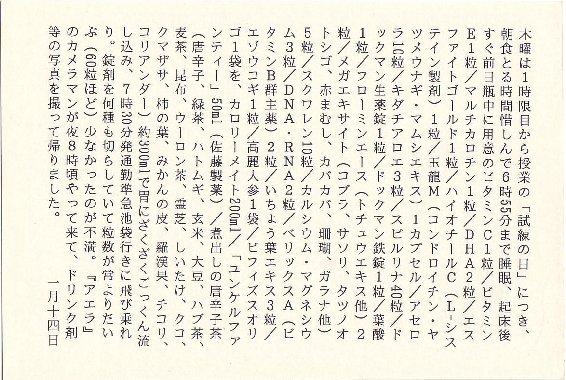 木曜は１時限目から授業の「試練の日」につき、
朝食とる時間惜しんで６時55分まで睡眠、起床後
すぐ前日瓶中に用意のビタミンＣ１粒／ビタミン
Ｅ１粒／マルチカロチン１粒／ＤＨＡ２粒／エス
ファイトゴールド１粒／ハイオチールＣ（Ｌ-シス
テイン製剤）１粒／玉龍Ｍ（コンドロイチン・ヤ
ツメウナギ・マムシエキス）１カプセル／アセロ
ラ10粒／キダチアロエ３粒／スピルリナ40粒／ド
ックマン生薬錠１粒／ドックマン鉄錠１粒／葉酸
１粒／フローミンエース（トチュウエキス他）２
粒／メガエキサイト（コブラ、サソリ、タツノオ
トシゴ、赤まむし、カバカバ、珊瑚、ガラナ他）
５粒／スクワレン10粒／カルシウム・マグネシウ
ム３粒／ＤＮＡ・ＲＮＡ２粒／ベリックスＡ（ビ
タミンＢ群主薬）２粒／いちょう葉エキス３粒／
エゾウコギ１粒／高麗人参１袋／ビフィズスオリ
ゴ１袋を、カロリーメイト200ml／「ユンケルファ
ンティー」50ml（佐藤製薬）／煮出しの唐辛子茶
（唐辛子、緑茶、ハトムギ、玄米、大豆、ハブ茶、
麦茶、昆布、ウーロン茶、霊芝、しいたけ、クコ、
クマザサ、柿の葉、みかんの皮、羅漢果、チコリ、
コリアンダー）約300mlで胃にざくざくごっくん流
し込み、７時30分発通勤準急池袋行きに飛び乗れ
り。錠剤を何種も切らしていて粒数が常よりだい
ぶ（60粒ほど）少なかったのが不満。『アエラ』
のカメラマンが夜８時頃やって来て、ドリンク剤
等の写真を撮って帰りました。　　一月十四日